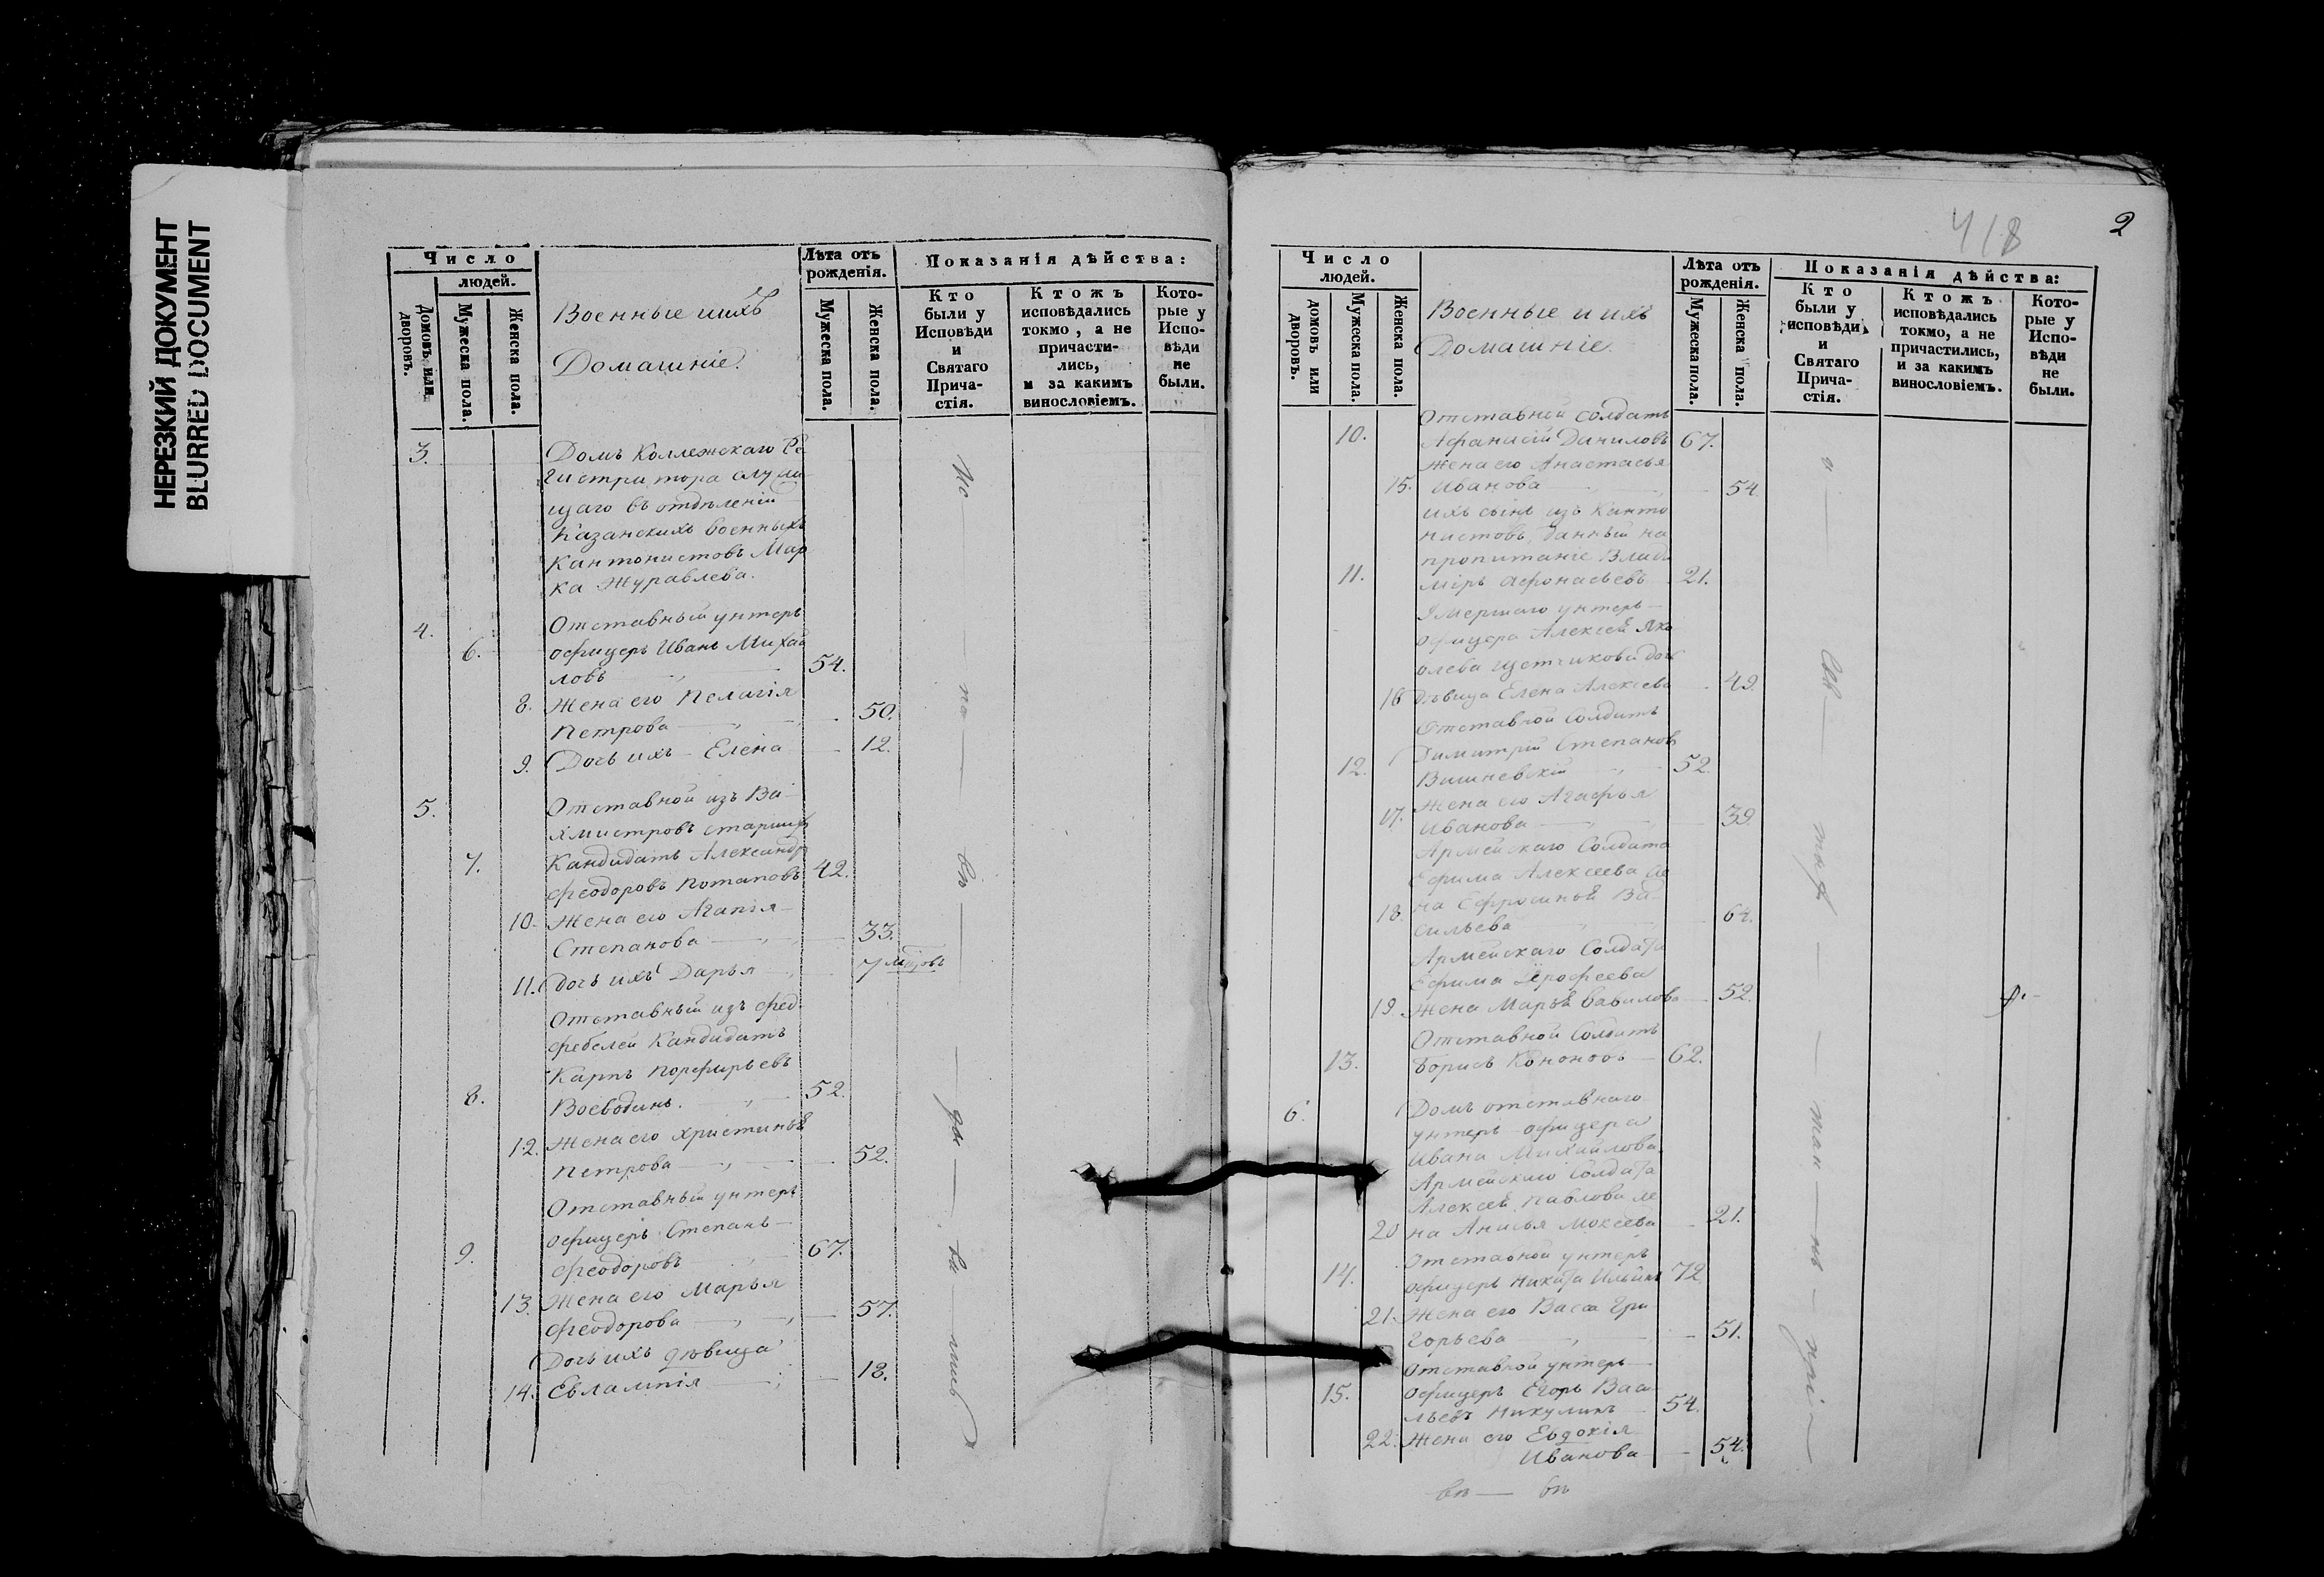 НЕРЕЗКИЙ ДОКУМЕНТ
BLURRED DOCUMENT
Число
людей.
Домовъ или дворовъ.
Мужеска пола.
Женска пола.
Военные и ихъ
Домашніе.
Лѣта отъ рожденія.
Мужеска пола.
Женска пола.
Показанія дѣйства:
Кто были у Исповѣди и Святаго Прича-стія.
Ктожъ исповѣдались токмо, а не причасти-лись, и за какимъ винословіемъ.
Кото-рые у Испо-вѣди не были.
3. Домъ Коллежскаго Ре
гистратора служа
щаго въ отдѣленіи
Казанскихъ военныхъ
Кантонистовъ Мар
ка Журавлева.
4. Отставный унтеръ
6. офицеръ Иванъ Михай
ловъ 54.
8. Жена его Пелагія
Петрова 50.
9. Дочь ихъ Елена 12.
5. Отставной изъ Ва
хмистровъ старшій
7. Кандидатъ Александр
Феодоровъ Потаповъ 42.
10. Жена его Агапія
Степанова 33.
11. дочь ихъ Дарья 7 мцовъ
Отставный изъ фелд
фебелей Кандидатъ
Карпъ Порфирьевъ
8. Воеводинъ. 52.
12. Жена его Христинья
Петрова 52.
Отставный унтеръ
офицеръ Степанъ
9. Феодоровъ 67.
13. Жена его Марья
Феодорова 57.
Дочь ихъ дѣвица
14. Евлампія 18.
Ис — по — вѣ — да — ва — лись
418
2
Число
людей.
домовъ или дворовъ.
Мужска пола.
Женска пола.
Военные и ихъ
Домашніе
Лѣта отъ рожденія.
Мужеска пола.
Женска пола.
Показанія дѣйства:
Кто были у исповѣди и Святаго Прича-стія.
Ктожъ исповѣдались токмо, а не причастились, и за какимъ винословіемъ.
Кото-рые у Испо-вѣди не были.
Отставной солдатъ
10. Афанасій Даниловъ 67.
Жена его Анастасья
15. Иванова 54.
ихъ сынъ изъ Канто
нистовъ, данный на
пропитаніе Влади
11. міръ Афонасьевъ 21.
Умершаго унтеръ
офицера Алексея Яко
влева Щетчикова дочь
16 дѣвица Елена Алексеева 49.
Отставной Солдатъ
Димитрій Степановъ
12. Вишневскій 52.
Жена его Агафья
17. Иванова 39.
Армейскаго Солдата
Ефима Алексеева Же
18. на Ефросинья Ва
сильева 64.
Армейскаго Солдата
Ефима Ерофеева
19. Жена Марья Вавилова 52.
Отставной Солдатъ
13. Борисъ Кононовъ 62.
6. Домъ отставнаго
унтеръ офицера
Ивана Михайлова.
Армейскаго Солдата
Алексея Павлова же
20 на Анисья Мокеева 21.
Отставной унтеръ
14. офицеръ Никита Ильинъ 72
21. Жена его Васса Гри
горьева 51.
Отставной унтеръ
15. офицеръ Егоръ Васи
льевъ Никулинъ 54.
22. Жена его Евдокія
Иванова 54.